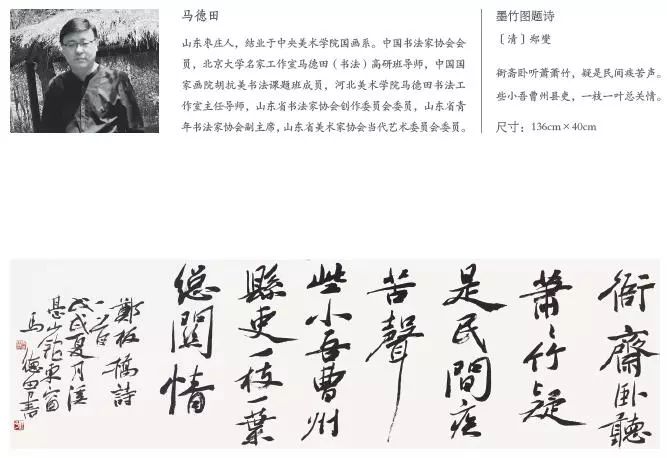 马德田
山东枣庄人，结业于中央美术学院国画系。中国书法家协会会
员，北京大学名家工作室马德田（书法）高研班导师，中国国
家画院胡抗美书法课题班成员，河北美术学院马德田书法工
作室主任导师，山东省书法家协会创作委员会委员，山东省青
年书法家协会副主席，山东省美术家协会当代艺术委员会委员。
墨竹图题诗
［清］郑燮
衙斋卧听萧萧竹，疑是民间疾苦声。
些小吾曹州县吏，一枝一叶总关情。
尺寸：136cm×40cm
衙齋卧聽
蕭〻竹疑
是民間疾
苦聲
些小吾曹州
縣吏一枝一葉
總關情
鄭板橋詩
一首
戊戌夏月
山館東窗
馬德田書